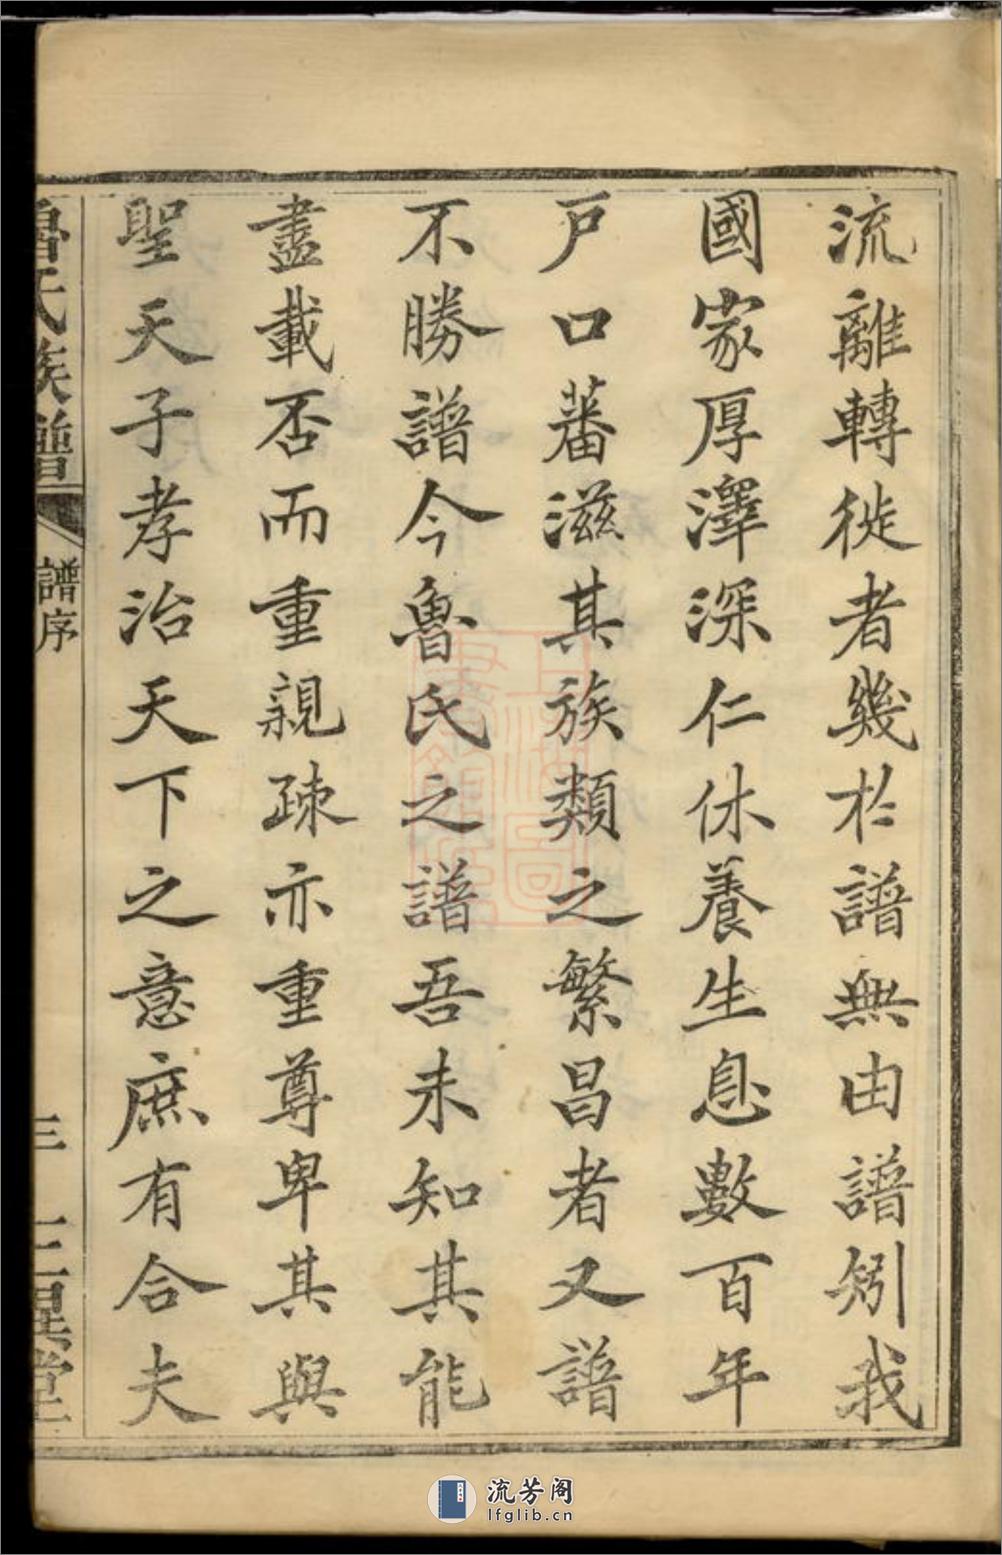 流離轉徙者幾於譜無由譜矧我
國家厚澤深仁休養生息數百年
戶口蕃滋其族類之繁昌者又譜
不勝譜今魯氏之譜吾未知其能
盡載否而重親疎亦重尊卑其與
聖天子孝治天下之意庶有合夫
魯氏族譜
譜序
三
三異堂
流芳阁
lfglib.cn